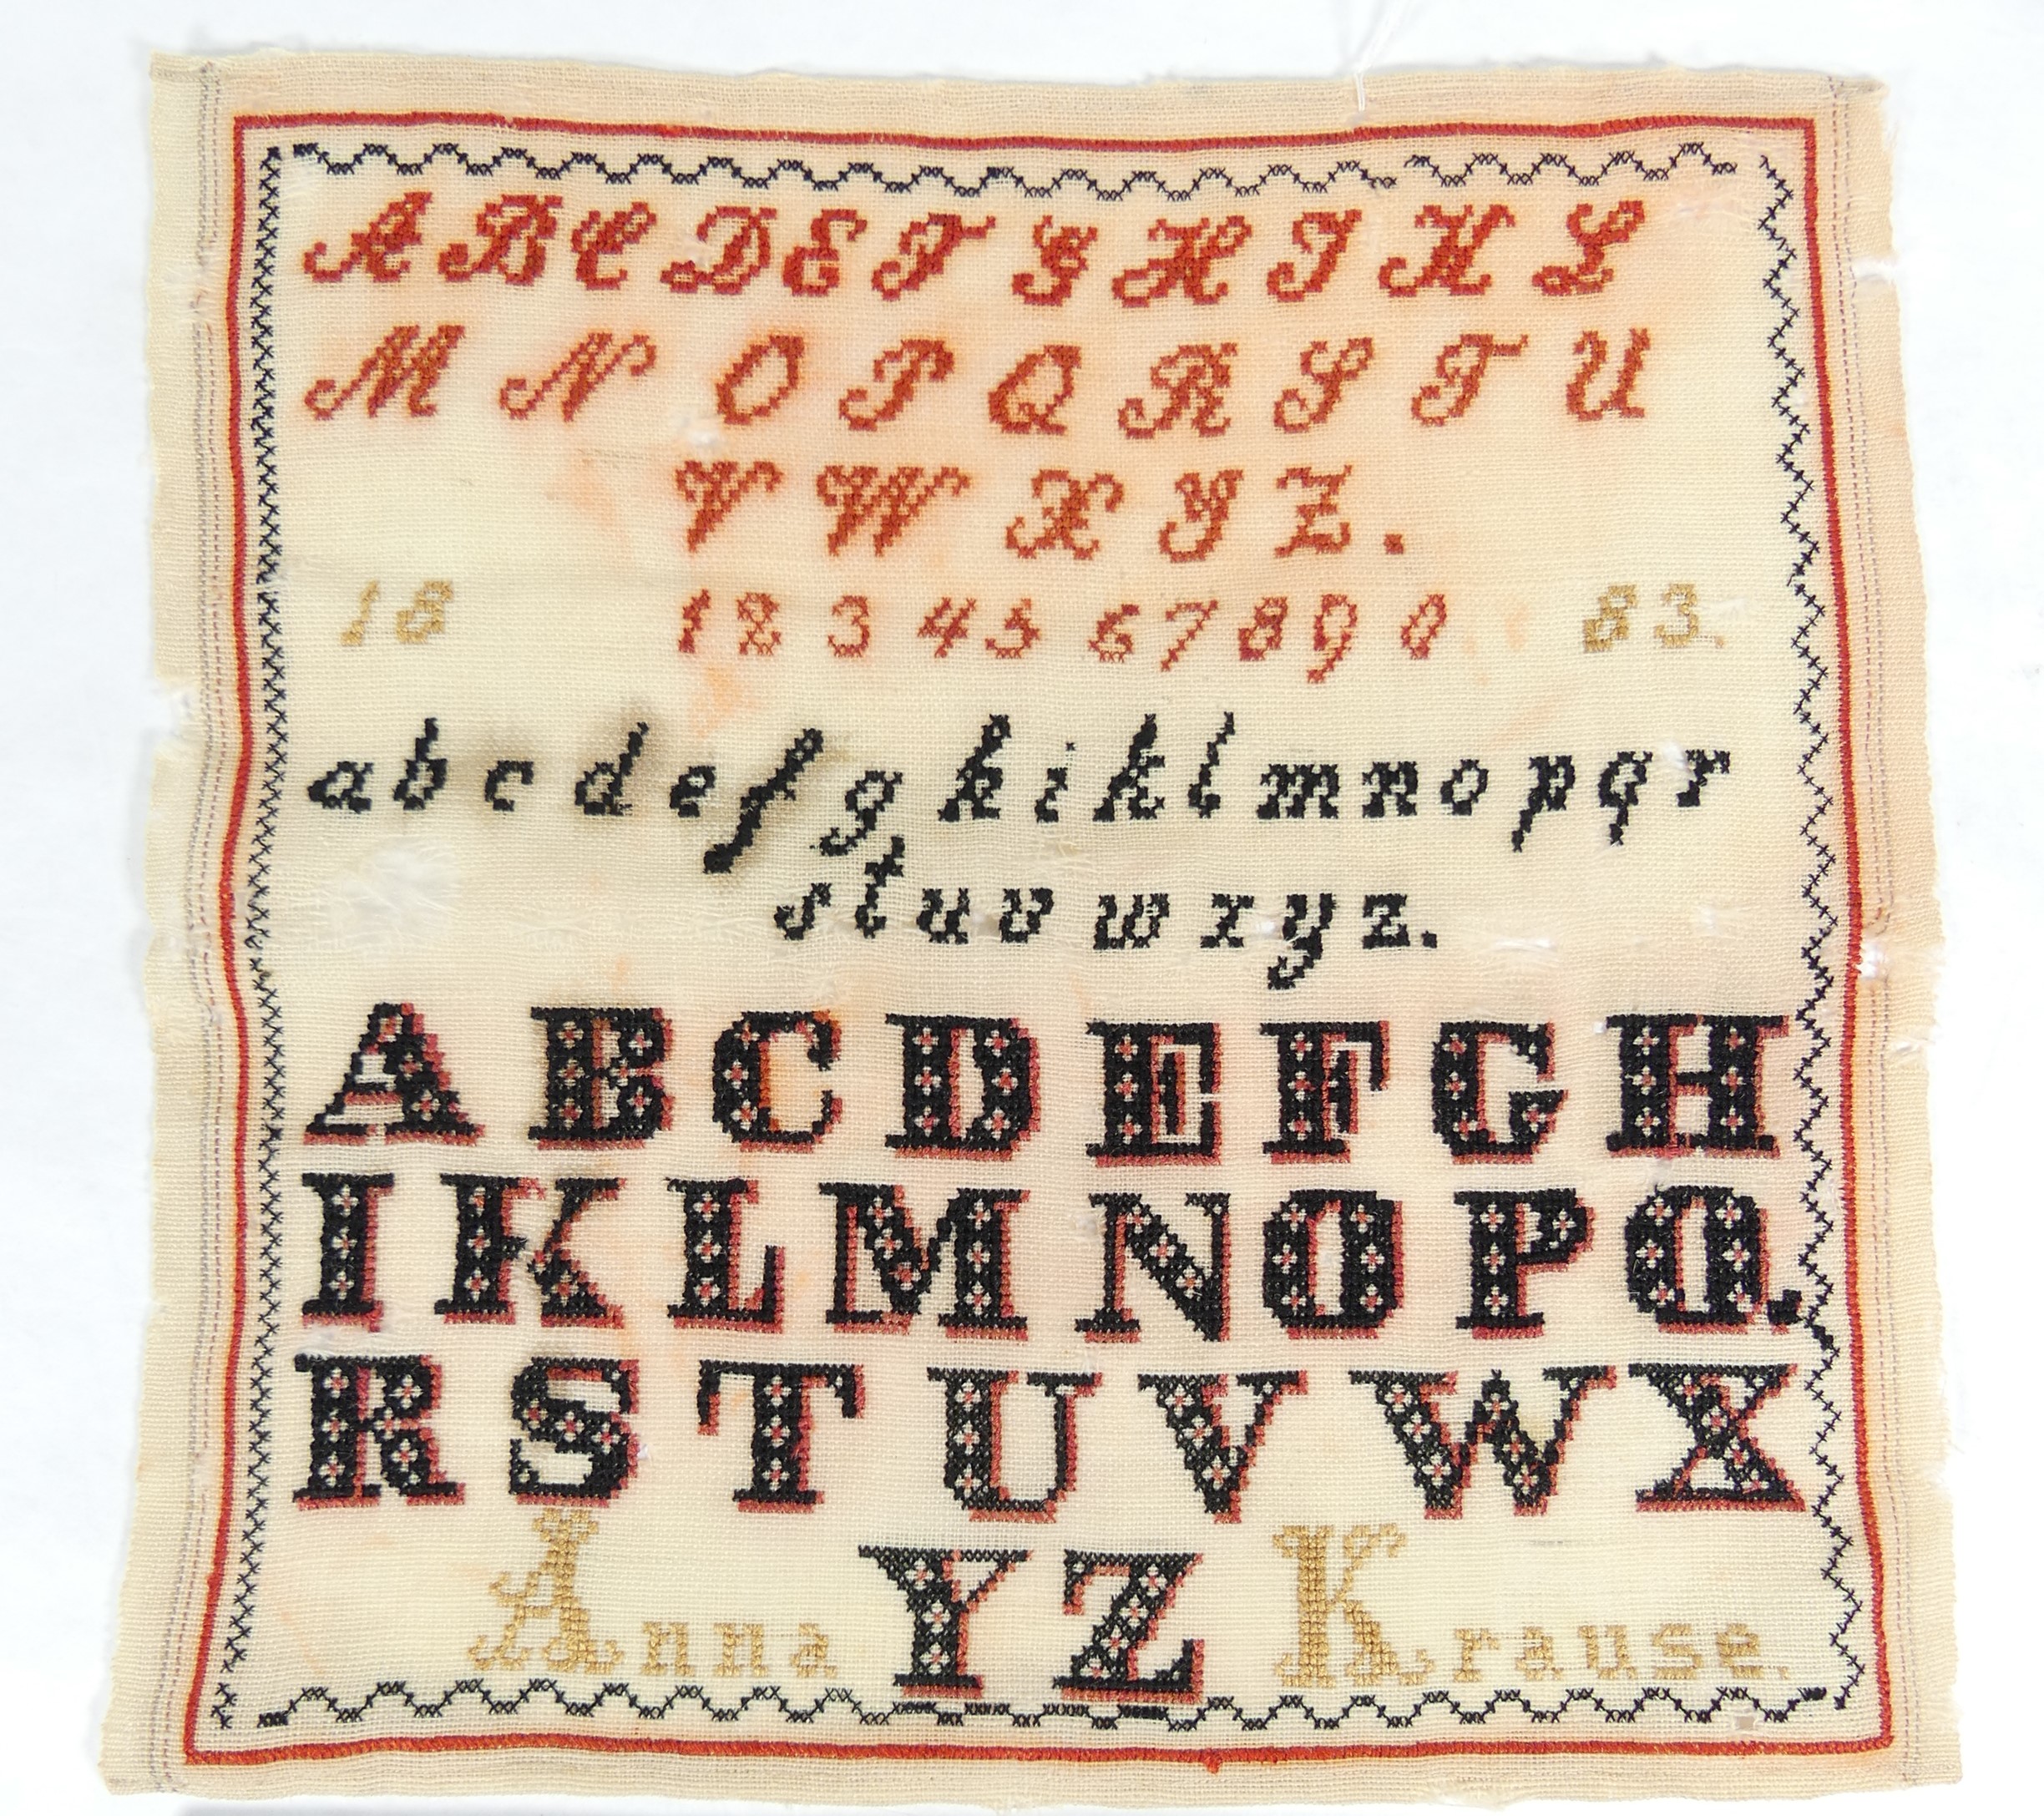 A B C D E F G H I K L
M N O P Q R S T U
V W X Y Z.
18 1 2 3 4 5 6 7 8 9 0 83.
a b c d e f g h i k l m n o p q r
s t u v w x y z.
A B C D E F G H
I K L M N O P Q
R S T U V W X
Anna Y Z Krause.